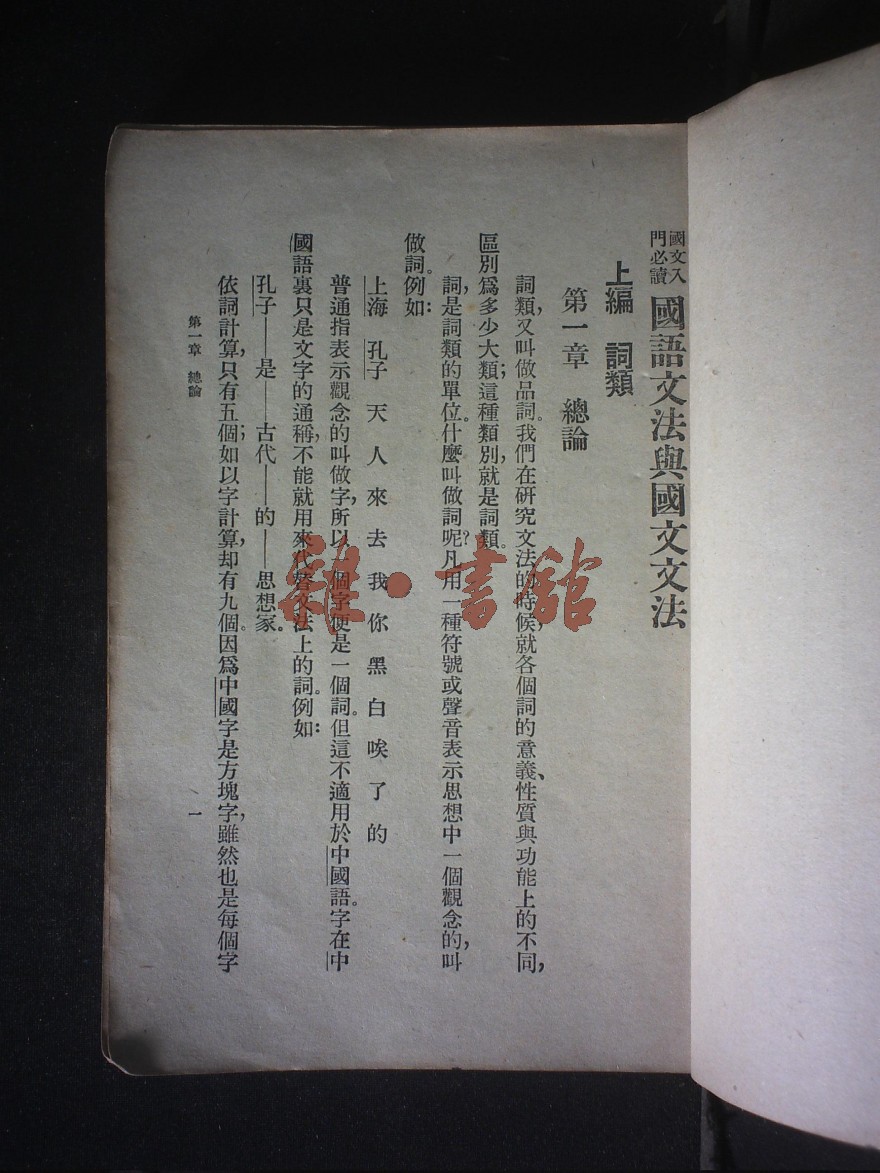 國文入門必讀 國語文法與國文文法
上編 詞類
第一章 總論
詞類,又叫做品詞。我們在研究文法的時候,就各個詞的意義、性質與功能上的不同,
區別爲多少大類;這種類別,就是詞類。
詞,是詞類的單位。什麼叫做詞呢?凡用一種符號或聲音表示思想中一個觀念的,叫
做詞。例如:
上海 孔子 天 人 來 去 我 你 黑 白 唉 了 的
普通指表示觀念的叫做字,所以一個字便是一個詞。但這不適用於中國語。字在中
國語裏只是文字的通稱,不能就用來代替文法上的詞。例如:
孔子——是——古代——的——思想家。
依詞計算,只有五個;如以字計算,却有九個。因爲中國字是方塊字,雖然也是每個字
第一章 總論
一
雜·書館